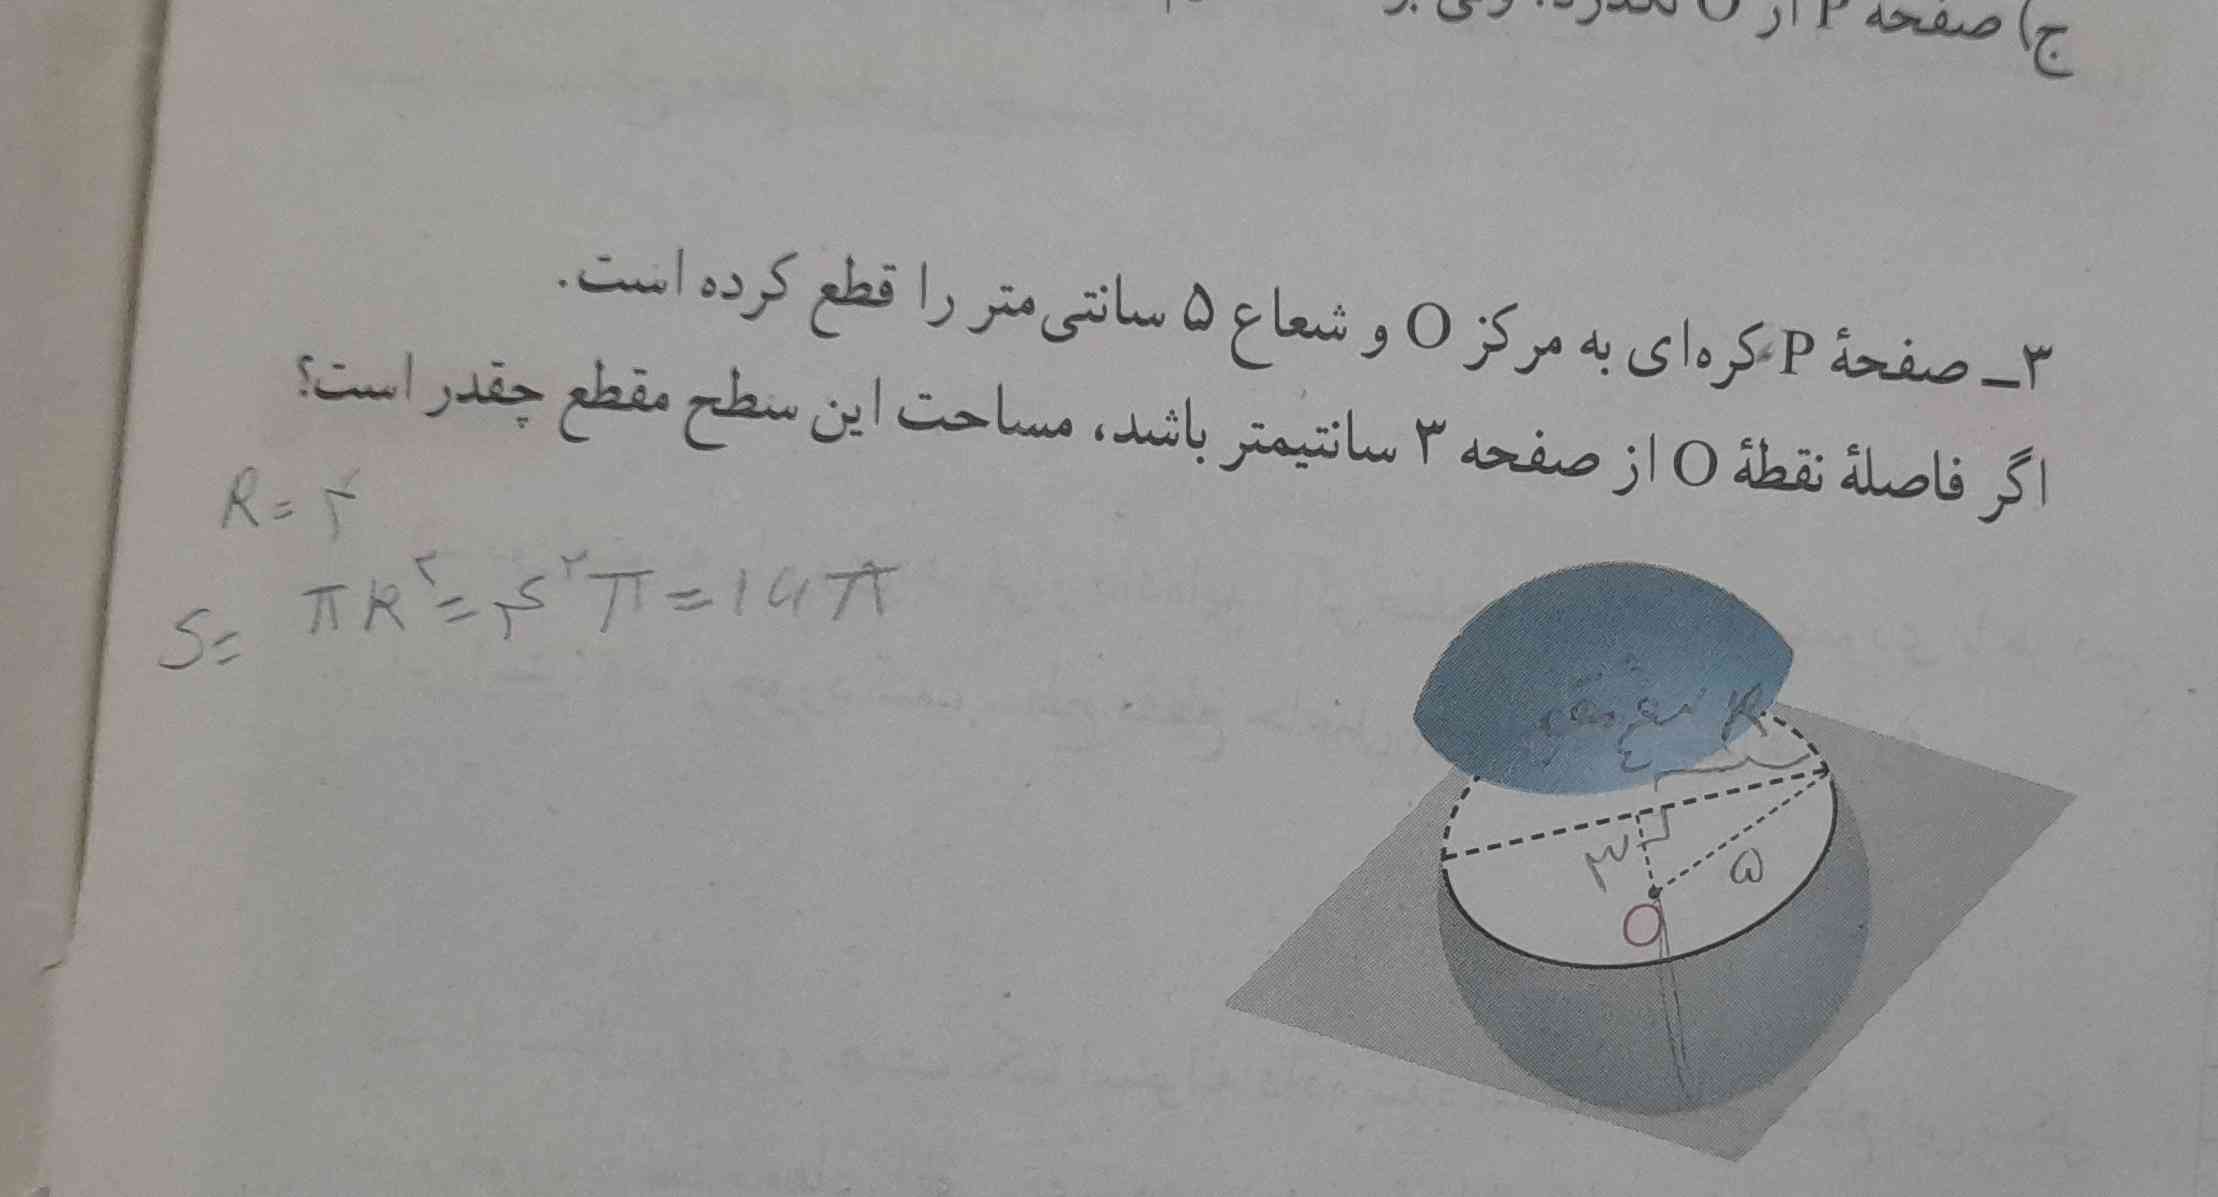 ج) صفحهٔ P از O نگذرد،
۳ــ صفحهٔ P کره‌ای به مرکز O و شعاع ۵ سانتی‌متر را قطع کرده است.
اگر فاصلهٔ نقطهٔ O از صفحه ۳ سانتیمتر باشد، مساحت این سطح مقطع چقدر است؟
R = ۴
S = πR^۲ = ۴^۲π = ۱۶π
R شعاع مقطع
۴
۳
۵
O